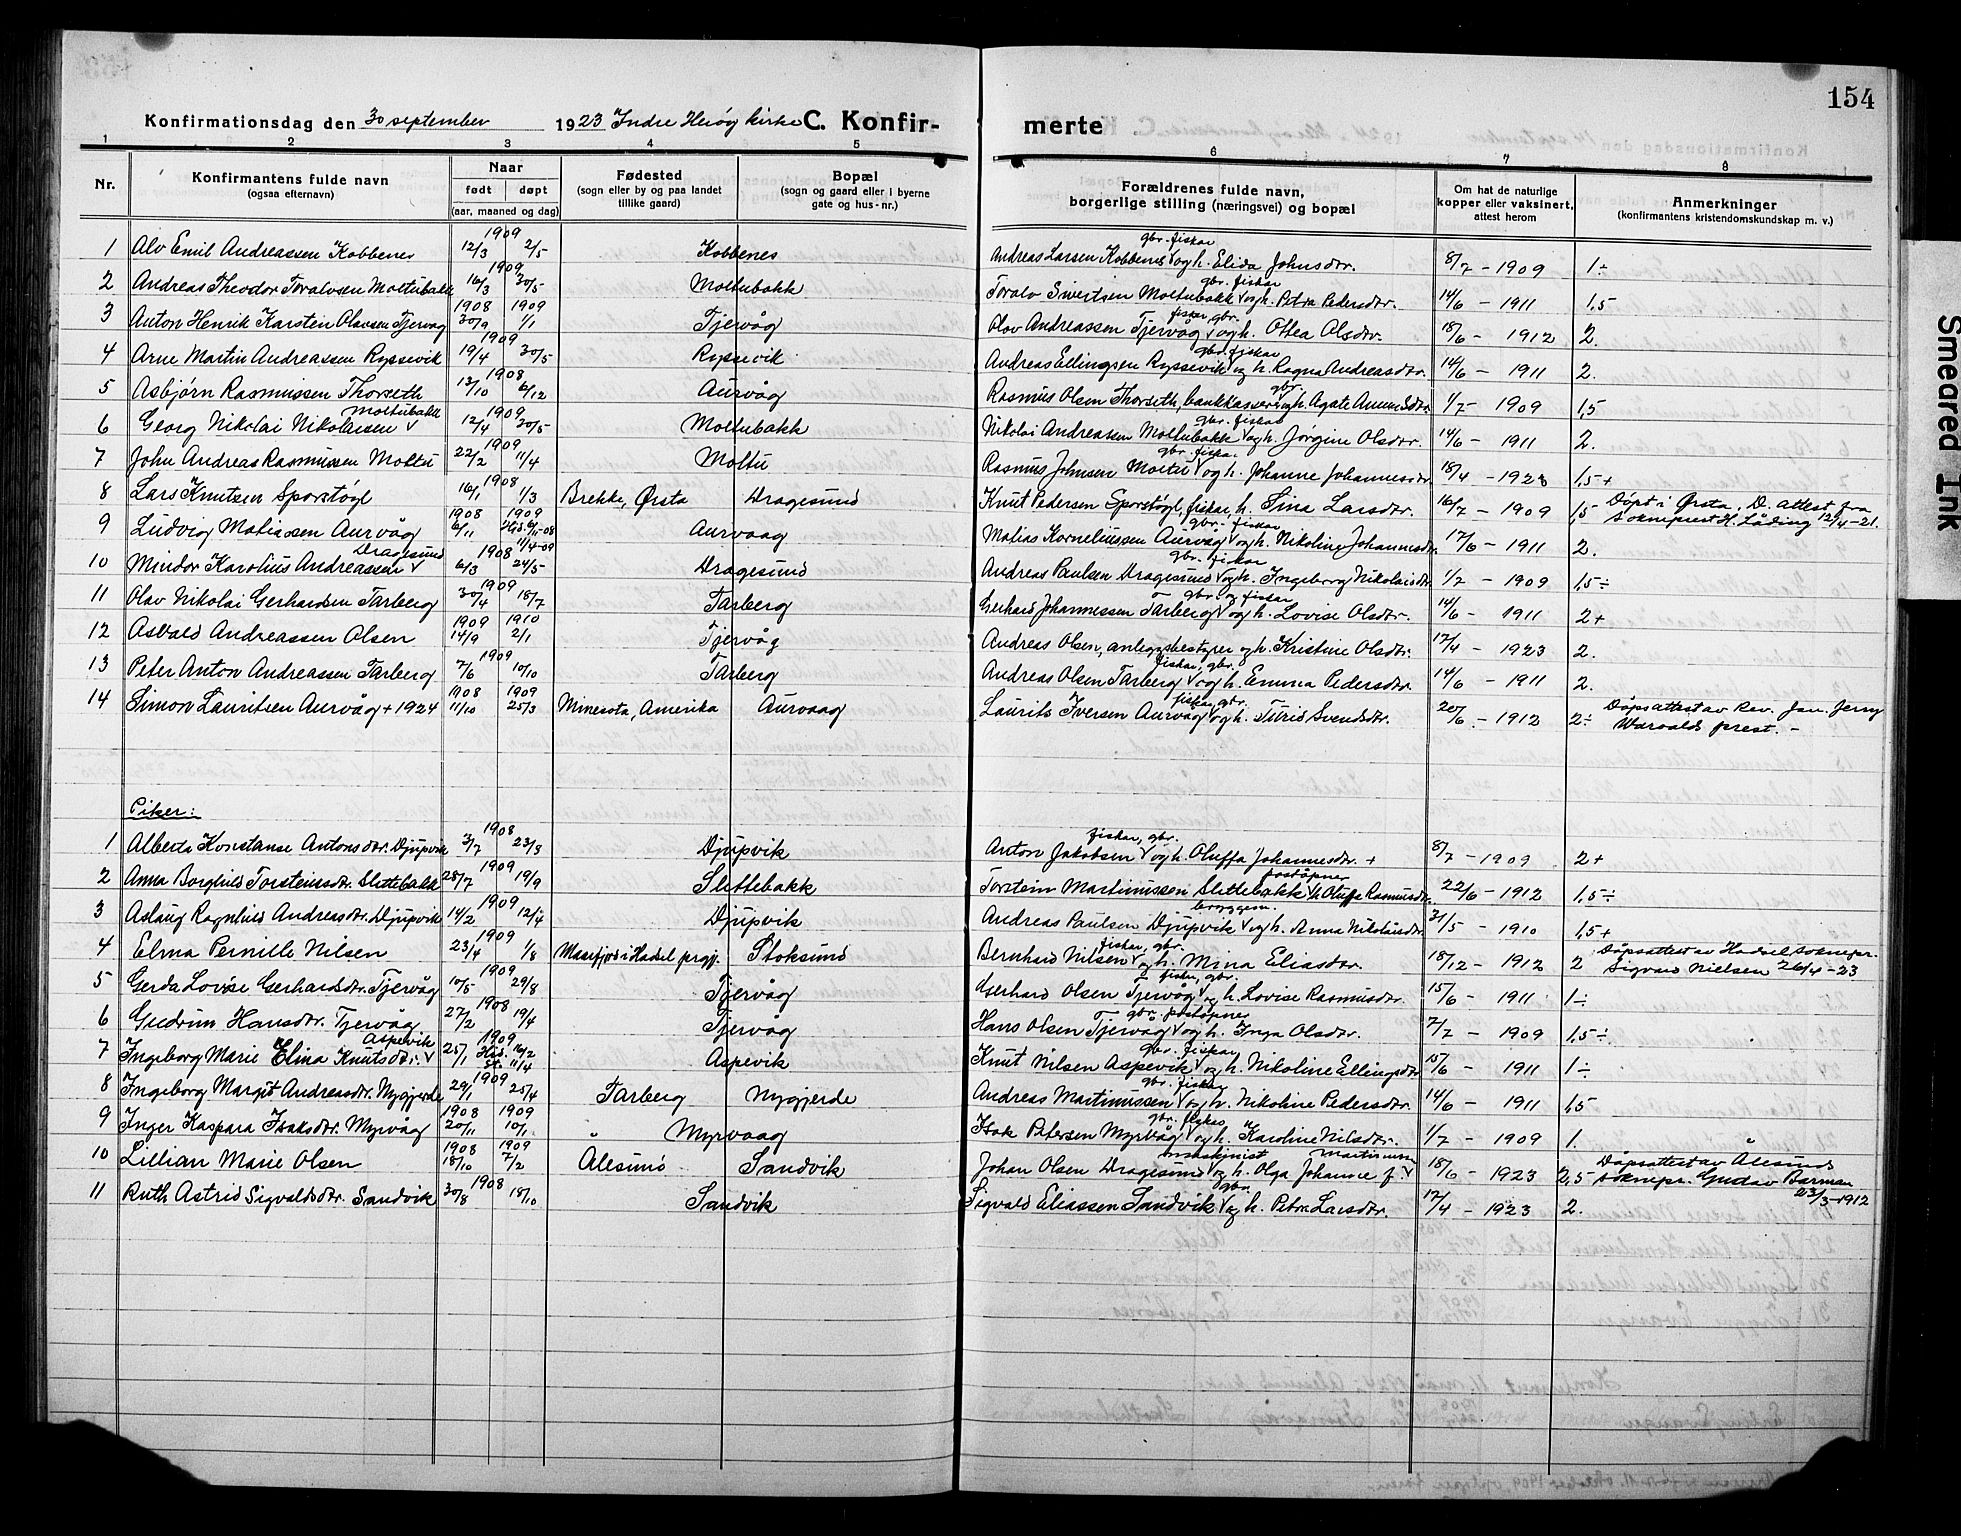 154
Konfirmationsdag den 30 september 1923 Indre Herøy kirke C. Konfir-merte
1 2 3 4 5 6 7 8
Nr. Konfirmantens fulde navn (ogsaa efternavn) Naar født døpt (aar, maaned og dag) Fødested (sogn eller by og paa landet tillike gaard) Bopæl (sogn og gaard eller i byerne gate og hus-nr.) Forældrenes fulde navn, borgerlige stilling (næringsvei) og bopæl Om hat de naturlige kopper eller vaksinert, attest herom Anmerkninger (konfirmantens kristendomskundskap m. v.)
1 Alv Emil Andreassen Kobbenes 1909 12/3 2/5 Kobbenes Andreas Larsen Kobbenes gbr. fiskar og h. Elida Johnsdtr. 8/7 - 1909 1÷
2 Andreas Theodor Toralvsen Moltubakk 1909 16/3 30/5 Moltubakk Toralv Sivertsen Moltubakk gbr. fiskar og h. Petra Pedersdtr. 14/6 - 1911 1,5
3 Anton Henrik Karsten Olavsen Tjervåg 1908 1909 30/9 1/1 Tjervåg Olav Andreassen Tjervåg fiskar, gbr. og h. Ottea Olsdtr. 18/6 - 1912 2.
4 Arne Martin Andreassen Ryssevik 1909 19/4 30/5 Ryssevik Andreas Ellingsen Ryssevik gbr. fiskar og h. Ragna Andreasdtr. 14/6 - 1911 2.
5 Asbjørn Rasmussen Thorseth 1908 13/10 6/12 Aurvåg Rasmus Olsen Thorseth, bankkasserer gbr. og h. Agate 1/7 - 1909 1,5
6 Georg Nikolai Nikolaisen Moltubakk 1909 12/4 30/5 Moltubakk Nikolai Andreassen Moltubakk gbr. fiskar og h. Jørgine Olsdtr. 14/6 - 1911 2.
7 John Andreas Rasmussen Moltu 1909 22/2 11/4 Moltu Rasmus Johnsen Moltu gbr. fiskar og h. Johanne Johannesdtr. 18/4 - 1923 1,5+
8 Lars Knutsen Sporstøyl 1908 16/1 1/3 Brekke, Ørsta Dragesund Knut Pedersen Sporstøyl, fiskar, h. Sina Larsdtr. 16/7 - 1909 1,5 Døpt i Ørsta, D. attest fra sokneprest H. Låding 12/4-21.
9 Ludvig Matiassen Aurvåg 1908 1909 6/11 Hjd. 6/11-08 11/4-09 Aurvaag Matias Korneliussen Aurvåg gbr. fiskar og h. Nikoline Johannesdtr. 17/6 - 1911 2.
10 Mindor Karolius Andreassen Dragesund 1908 6/3 24/5 Dragesund Andreas Paulsen Dragesund gbr. fiskar og h. Ingeborg Nikolaisdtr. 1/7 - 1909 1,5÷
11 Olav Nikolai Gerhardsen Tarberg 1909 30/4 18/7 Tarberg Gerhard Johannessen Tarberg gbr. og fiskar og h. Lovise Olsdtr. 14/6 - 1911 2+
12 Asvald Andreassen Olsen 1909 1910 14/9 2/1 Tjervåg Andreas Olsen, anleggsbestyrer og h. Kristine Olsdtr. 17/4 - 1923 2.
13 Peter Anton Andreassen Tarberg 1909 7/6 10/10 Tarberg Andreas Olsen Tarberg fiskar, gbr. og h. Emma Pedersdtr. 14/6 - 1911 2.
14 Simon Lauritsen Aurvåg + 1924 1908 1909 11/10 25/3 Minesota, Amerika Aurvaag Laurits Iversen Aurvåg fiskar, gbr. og h. Svendsdtr. 20/6 - 1912 2÷ Døpsattest av Rev. Jan. prest. -
Piker:
1 Alberte Konstanse Antonsdtr. Djupvik 1908 3/7 23/8 Djupvik Anton Jakobsen fiskar, gbr. og h. Oluffa Johannesdtr. + 8/7 - 1909 2+
2 Anna Borghild Torsteinsdtr. Slettebakk 1909 28/7 19/9 Slettebakk Torstein Martinussen Slettebakk postopner h. Oluffa Rasmusdtr. 22/6 - 1912 1,5÷
3 Aslaug Ragnhild Andreasdtr. Djupvik 1909 14/2 12/4 Djupvik Andreas Paulsen Djupvik og h. Anna Nikolaisdtr. 31/5 - 1910 1,5+
4 Elma Pernille Nilsen 1909 23/4 1/8 Masefjord i Hadsel prgj. Stoksund Bernhard Nilsen fiskar, gbr. og h. Mina Eliasdtr. 18/12 - 1912 2 Døpsattest av Hadsel soknepr. Sigvard Nielsen 26/4-23
5 Gerda Lovise Gerhardsdtr. Tjervåg 1909 10/5 29/8 Tjervåg Gerhard Olsen Tjervåg fiskar, gbr. og h. Lovise Rasmusdtr. 15/6 - 1911 1÷
6 Gudrun Hansdtr. Tjervåg 1908 27/2 19/4 Tjervåg Hans Olsen Tjervåg gbr. postopner og h. Inga Olsdtr. 7/7 - 1909 1,5÷
7 Ingeborg Marie Elina Knutsdtr. Aspevik 1909 25/1 Hjd. 16/2 st. 11/4 Aspevik Knut Nilsen Aspevik gbr. fiskar og h. Nikoline Ellingsdtr. 15/6 - 1911 1÷
8 Ingeborg Margit Andreasdtr. Nygjerde 1909 29/1 25/4 Tarberg Nygjerde Andreas Martinussen gbr. fiskar og h. Nikoline Pedersdtr. 14/6 - 1911 1,5
9 Inger Kaspara Isaksdtr. Myrvåg 1908 1909 20/11 10/1 Myrvaag Isak Petersen Myrvåg gbr. og h. Karoline Nilsdtr. 1/7 - 1909 1.
10 Lillian Marie Olsen 1908 1909 18/10 7/2 Ålesund Sandvik Johan Olsen Dragesund maskinist og h. Olga Johanne f. Martinsen 18/6 - 1923 2,5 Døpsattest av Ålesund soknepr. Gustav Barman 23/3-1912
11 Ruth Astrid Sigvaldsdtr. Sandvik 1908 30/8 18/10 Sandvik Sigvald Eliassen Sandvik gbr. og h. Petra Larsdtr. 17/4 - 1923 2.
Smeared Ink